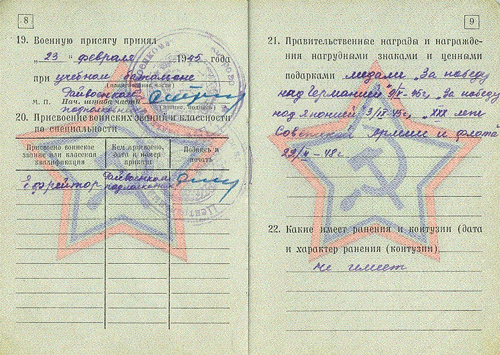 8
19. Военную присягу принял
„23" февраля 1945 года
при учебном батальоне
(наименование части)
Райвоенкомат
м. п. Нач. штаба части
подполковник
(звание, подпись)
20. Присвоение воинских званий и классности
по специальности
Присвоено воинское звание или классная квалификация
Кем присвоено, дата и номер приказа
Подпись и печать
Ефрейтор
Райвоенком
подполковник
9
21. Правительственные награды и награжде-
ния нагрудными знаками и ценными
подарками медали „За победу
над Германией" 9/V-45г, „За победу
над Японией" 3/IX-45г, „XXX лет
Советской Армии и флота"
22/II-48г.
22. Какие имеет ранения и контузии (дата
и характер ранения (контузии)
Не имеет